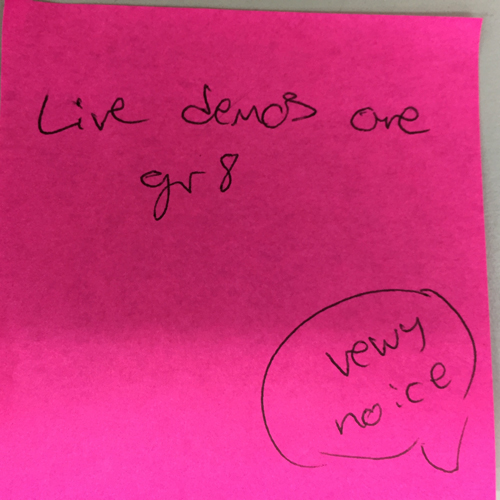 Live demos are
gr8
vewy
noice